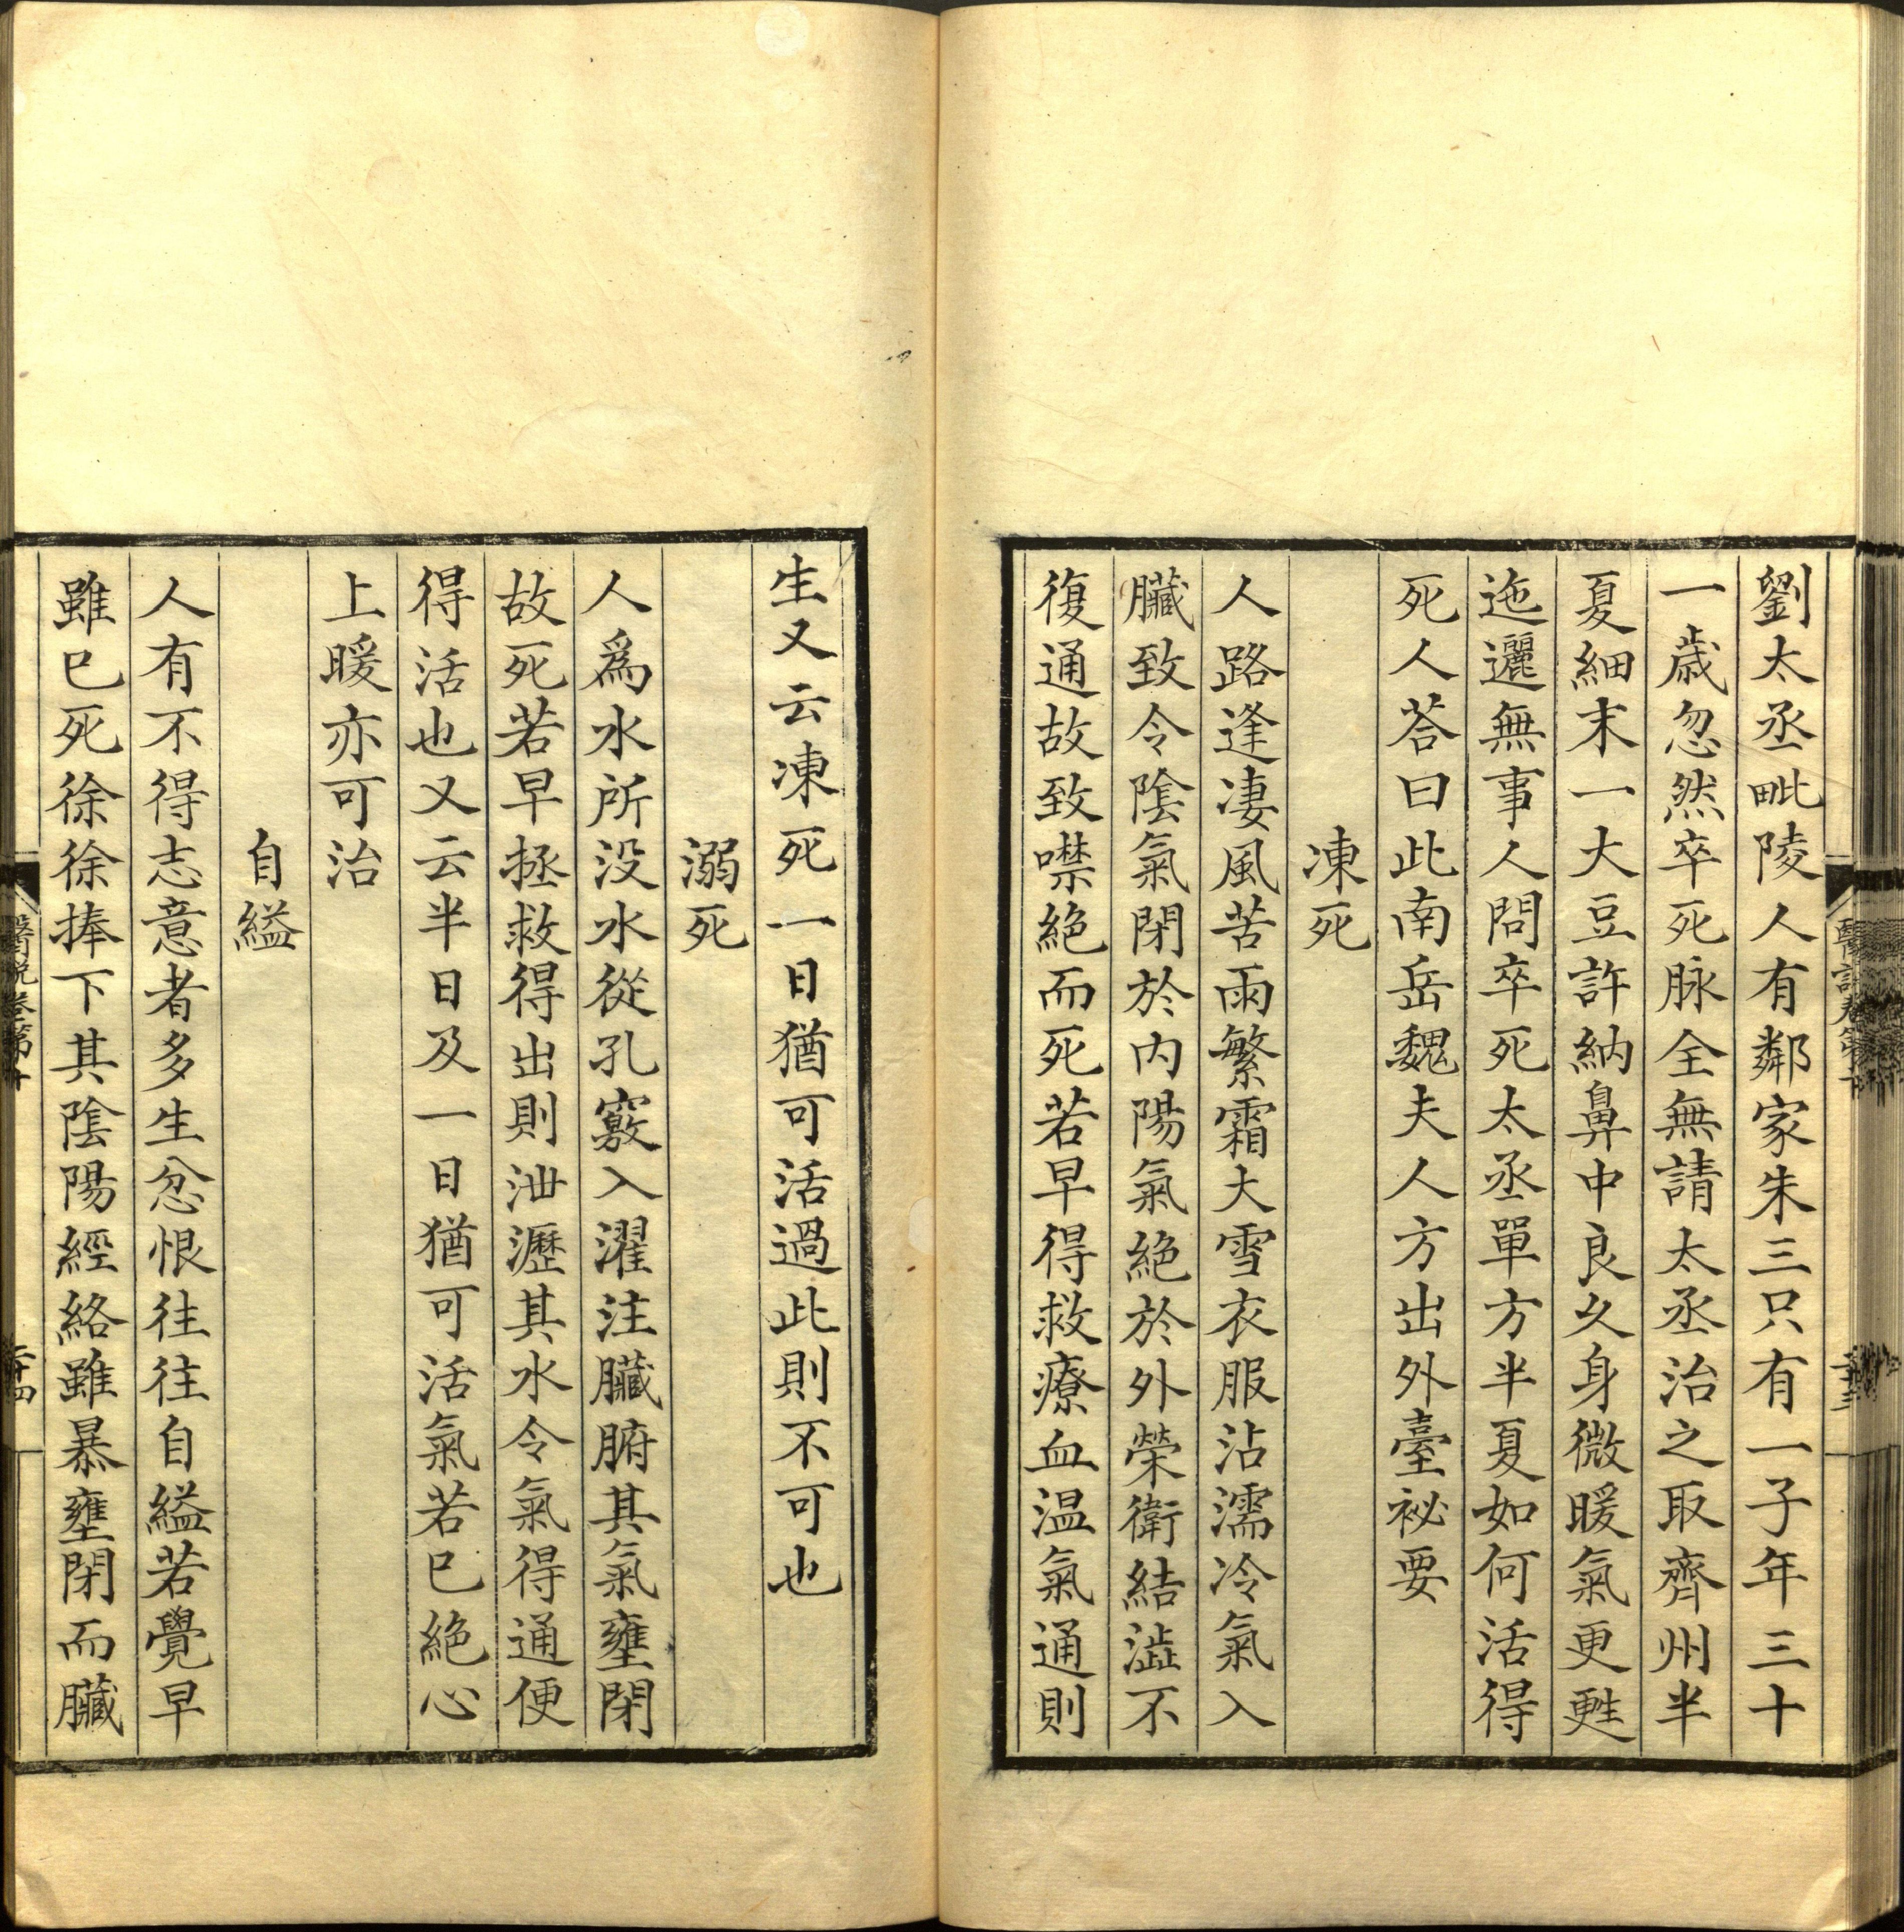 劉太丞毗陵人有鄰家朱三只有一子年三十
一歲忽然卒死脉全無請太丞治之取齊州半
夏細末一大豆許納鼻中良久身微暖氣更甦
迤邐無事人問卒死太丞單方半夏如何活得
死人荅曰此南岳魏夫人方出外臺祕要
凍死
人路逢凄風苦雨繁霜大雪衣服沾濡冷氣入
臟致令陰氣閉於内陽氣絶於外榮衛結澁不
復通故致噤絶而死若早得救療血温氣通則
生又云凍死一日猶可活過此則不可也
溺死
人爲水所没水從孔竅入濯注臟腑其氣壅閉
故死若早拯救得出則泄瀝其水令氣得通便
得活也又云半日及一日猶可活氣若巳絶心
上暖亦可治
自縊
人有不得志意者多生忿恨往往自縊若覺早
雖巳死徐徐捧下其陰陽經絡雖暴壅閉而臟
醫說卷第十
二十四